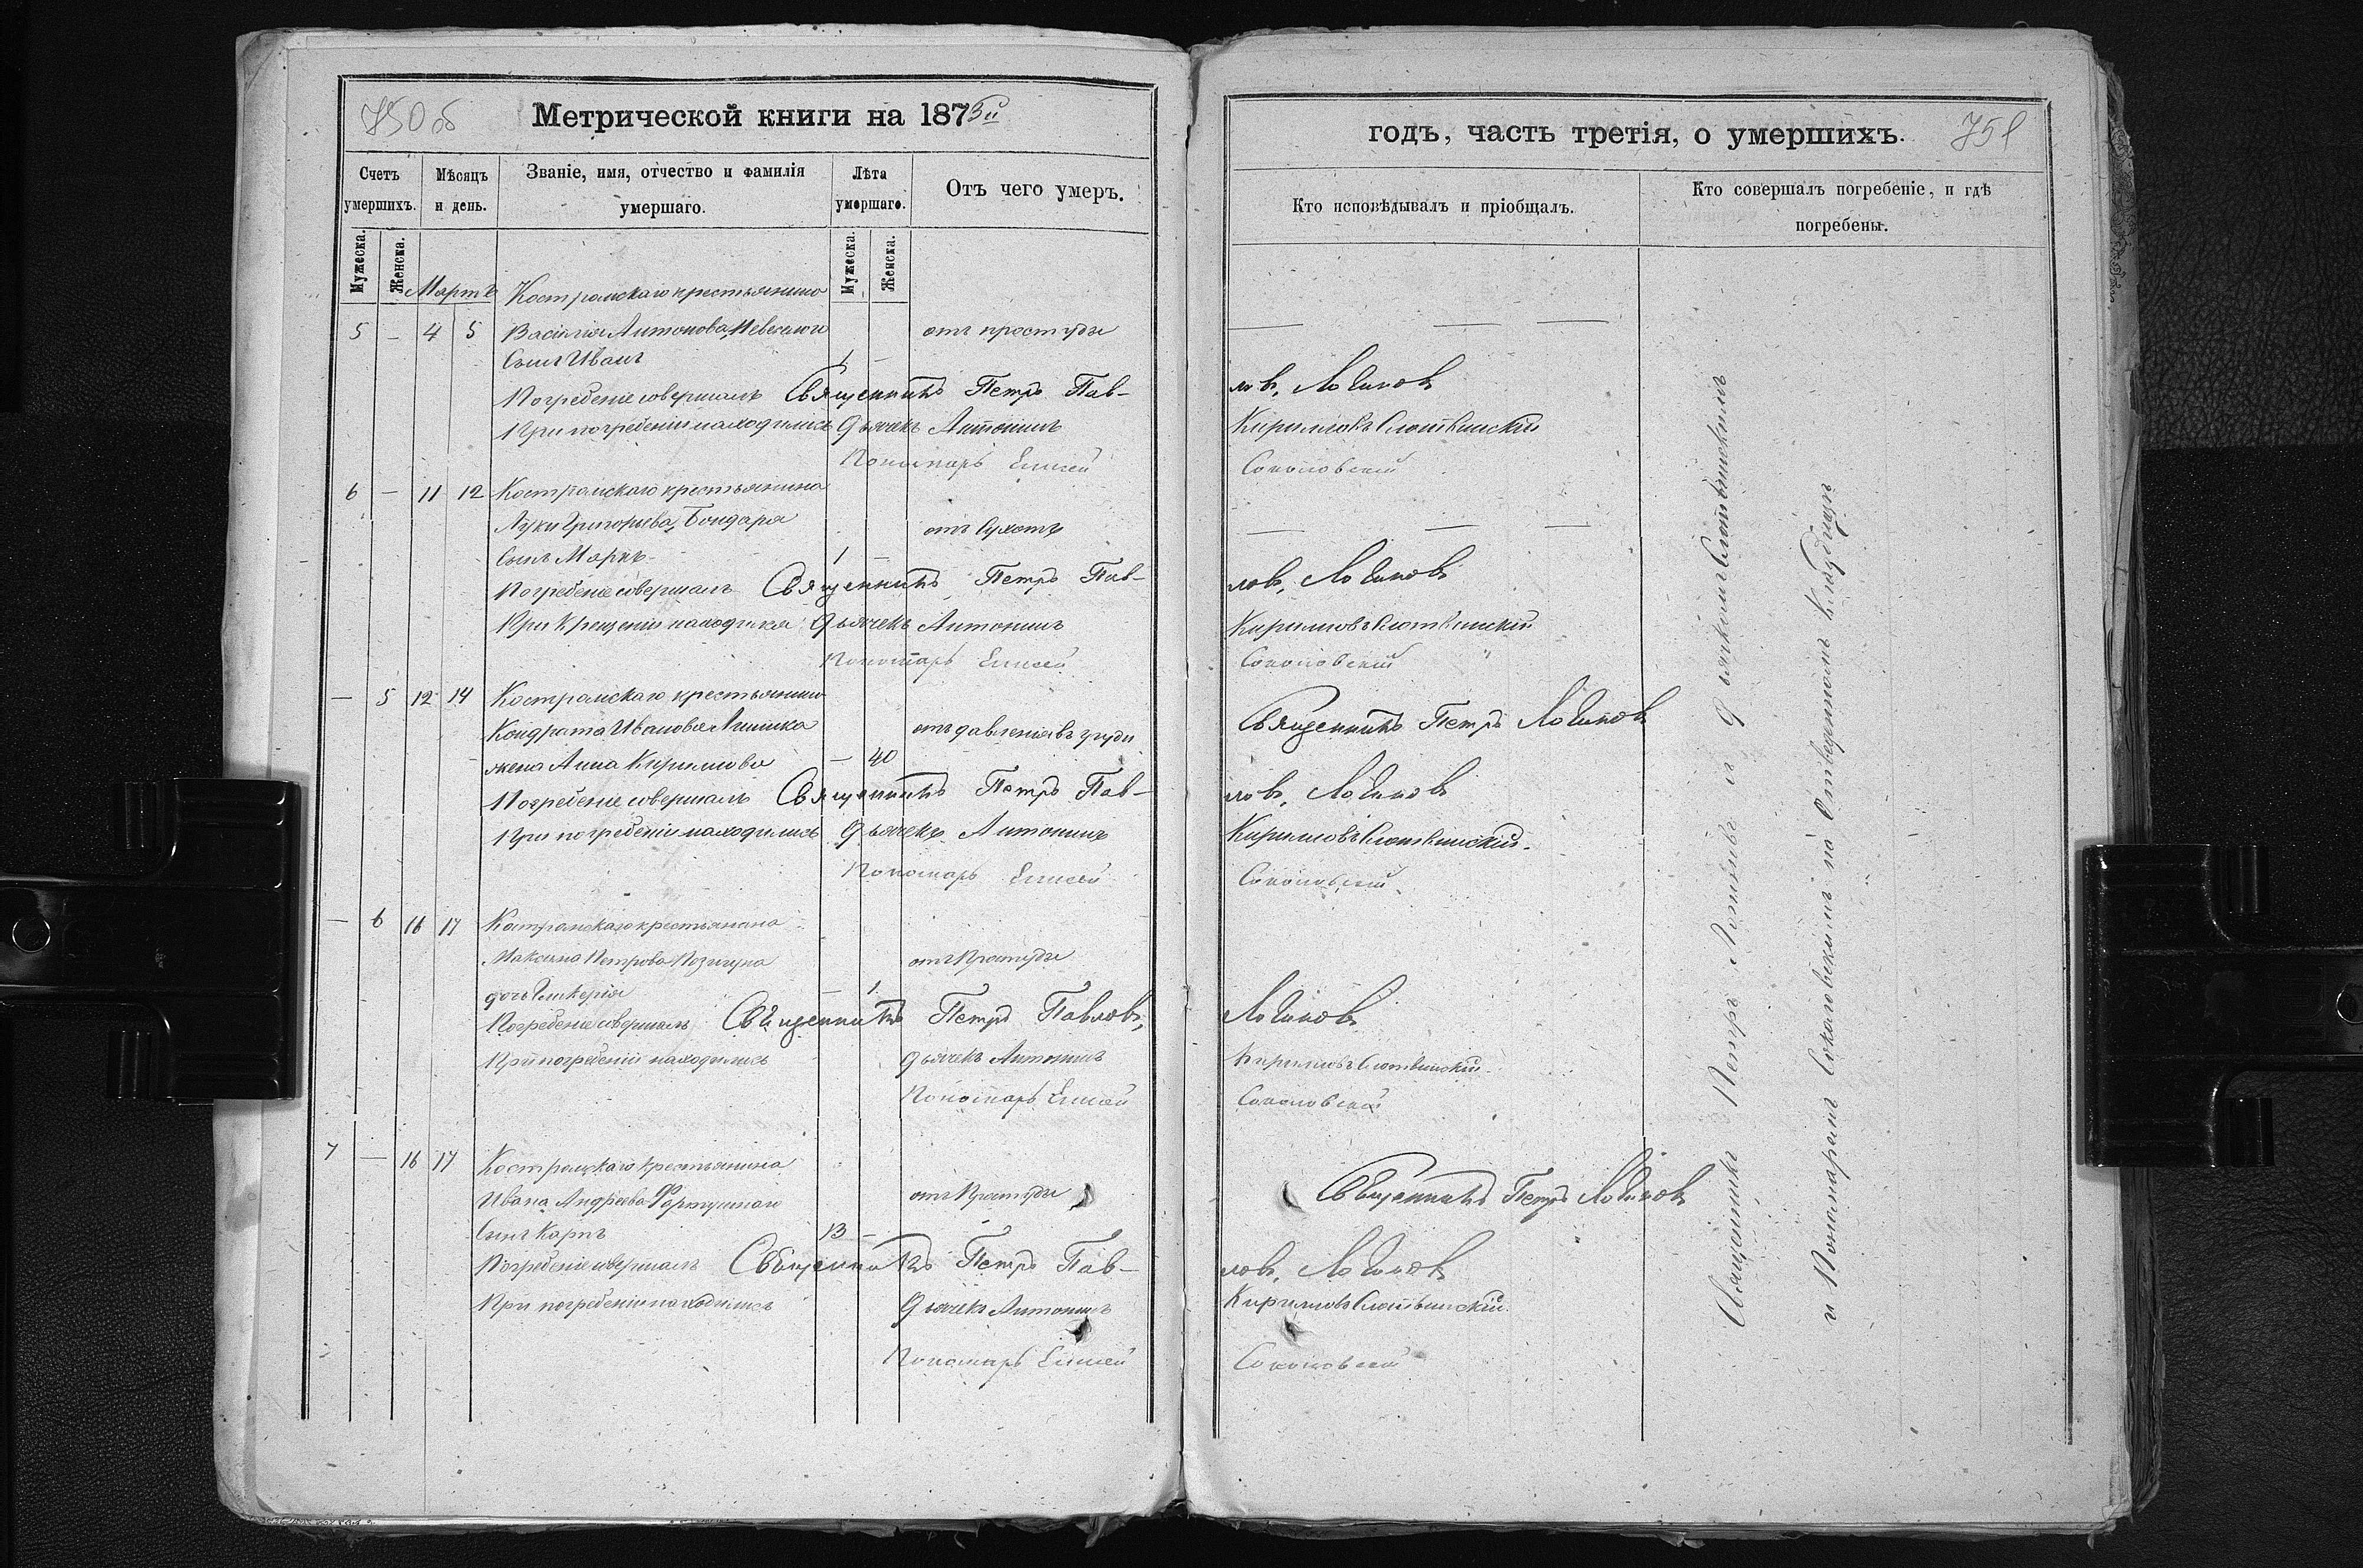 750 об
Метрической книги на 1875й
Счетъ умершихъ.
Мѣсяцъ и день.
Званіе, имя, отчество и фамилія умершаго.
Лѣта умершаго.
Отъ чего умеръ.
Мужеска.
Женска.
Мужеска.
Женска.
Мартъ
Костромскаго крестьянина
5 – 4 5 Василія Антонова Невеселого отъ простуды
Сынъ Иванъ 1 –
Погребеніе совершалъ Священникъ Петръ Пав-
При погребеніи находились Дьячекъ Антонинъ
Пономарь Елисей
6 – 11 12 Костромскаго крестьянина
Луки Григорьева Бондаря отъ Сухотъ
Сынъ Маркъ 1 –
Погребеніе совершалъ Священникъ Петръ Пав-
При Крещеніи находились Дьячекъ Антонинъ
Пономарь Елисей
– 5 12 14 Костромскаго крестьянина
Кондрата Иванова отъ давленія въ груди
жена Анна Кирилова – 40
Погребеніе совершалъ Священникъ Петръ Пав-
При погребеніи находились Дьячекъ Антонинъ
Пономарь Елисей
– 6 16 17 Костромскаго крестьянина
Максима Петрова отъ Простуды
дочь Гликерія – 1
Погребеніе совершалъ Священникъ Петръ Павловъ,
При погребеніи находились Дьячекъ Антонинъ
Пономарь Елисей
7 – 16 17 Костромскаго крестьянина
Ивана Андреева отъ Простуды
Сынъ Карпъ 13 –
Погребеніе совершалъ Священникъ Петръ Пав-
При погребеніи находились Дьячекъ Антонинъ
Пономарь Елисей
годъ, часть третія, о умершихъ. 751
Кто исповѣдывалъ и пріобщалъ.
Кто совершалъ погребеніе, и гдѣ погребены.
ловъ, Логиновъ
Кириловъ Слотвинскій
Соколовскій
ловъ, Логиновъ
Кириловъ Слотвинскій
Соколовскій
Священникъ Петръ Логиновъ
ловъ, Логиновъ
Кириловъ Слотвинскій
Соколовскій
Логиновъ
Кириловъ Слотвинскій
Соколовскій
Священникъ Петръ Логиновъ
ловъ, Логиновъ
Кириловъ Слотвинскій
Соколовскій
Священникъ Петръ Логиновъ и Дьячкомъ Слотвинскимъ
и Пономаремъ Соколовскимъ на Отведенномъ Кладбищѣ